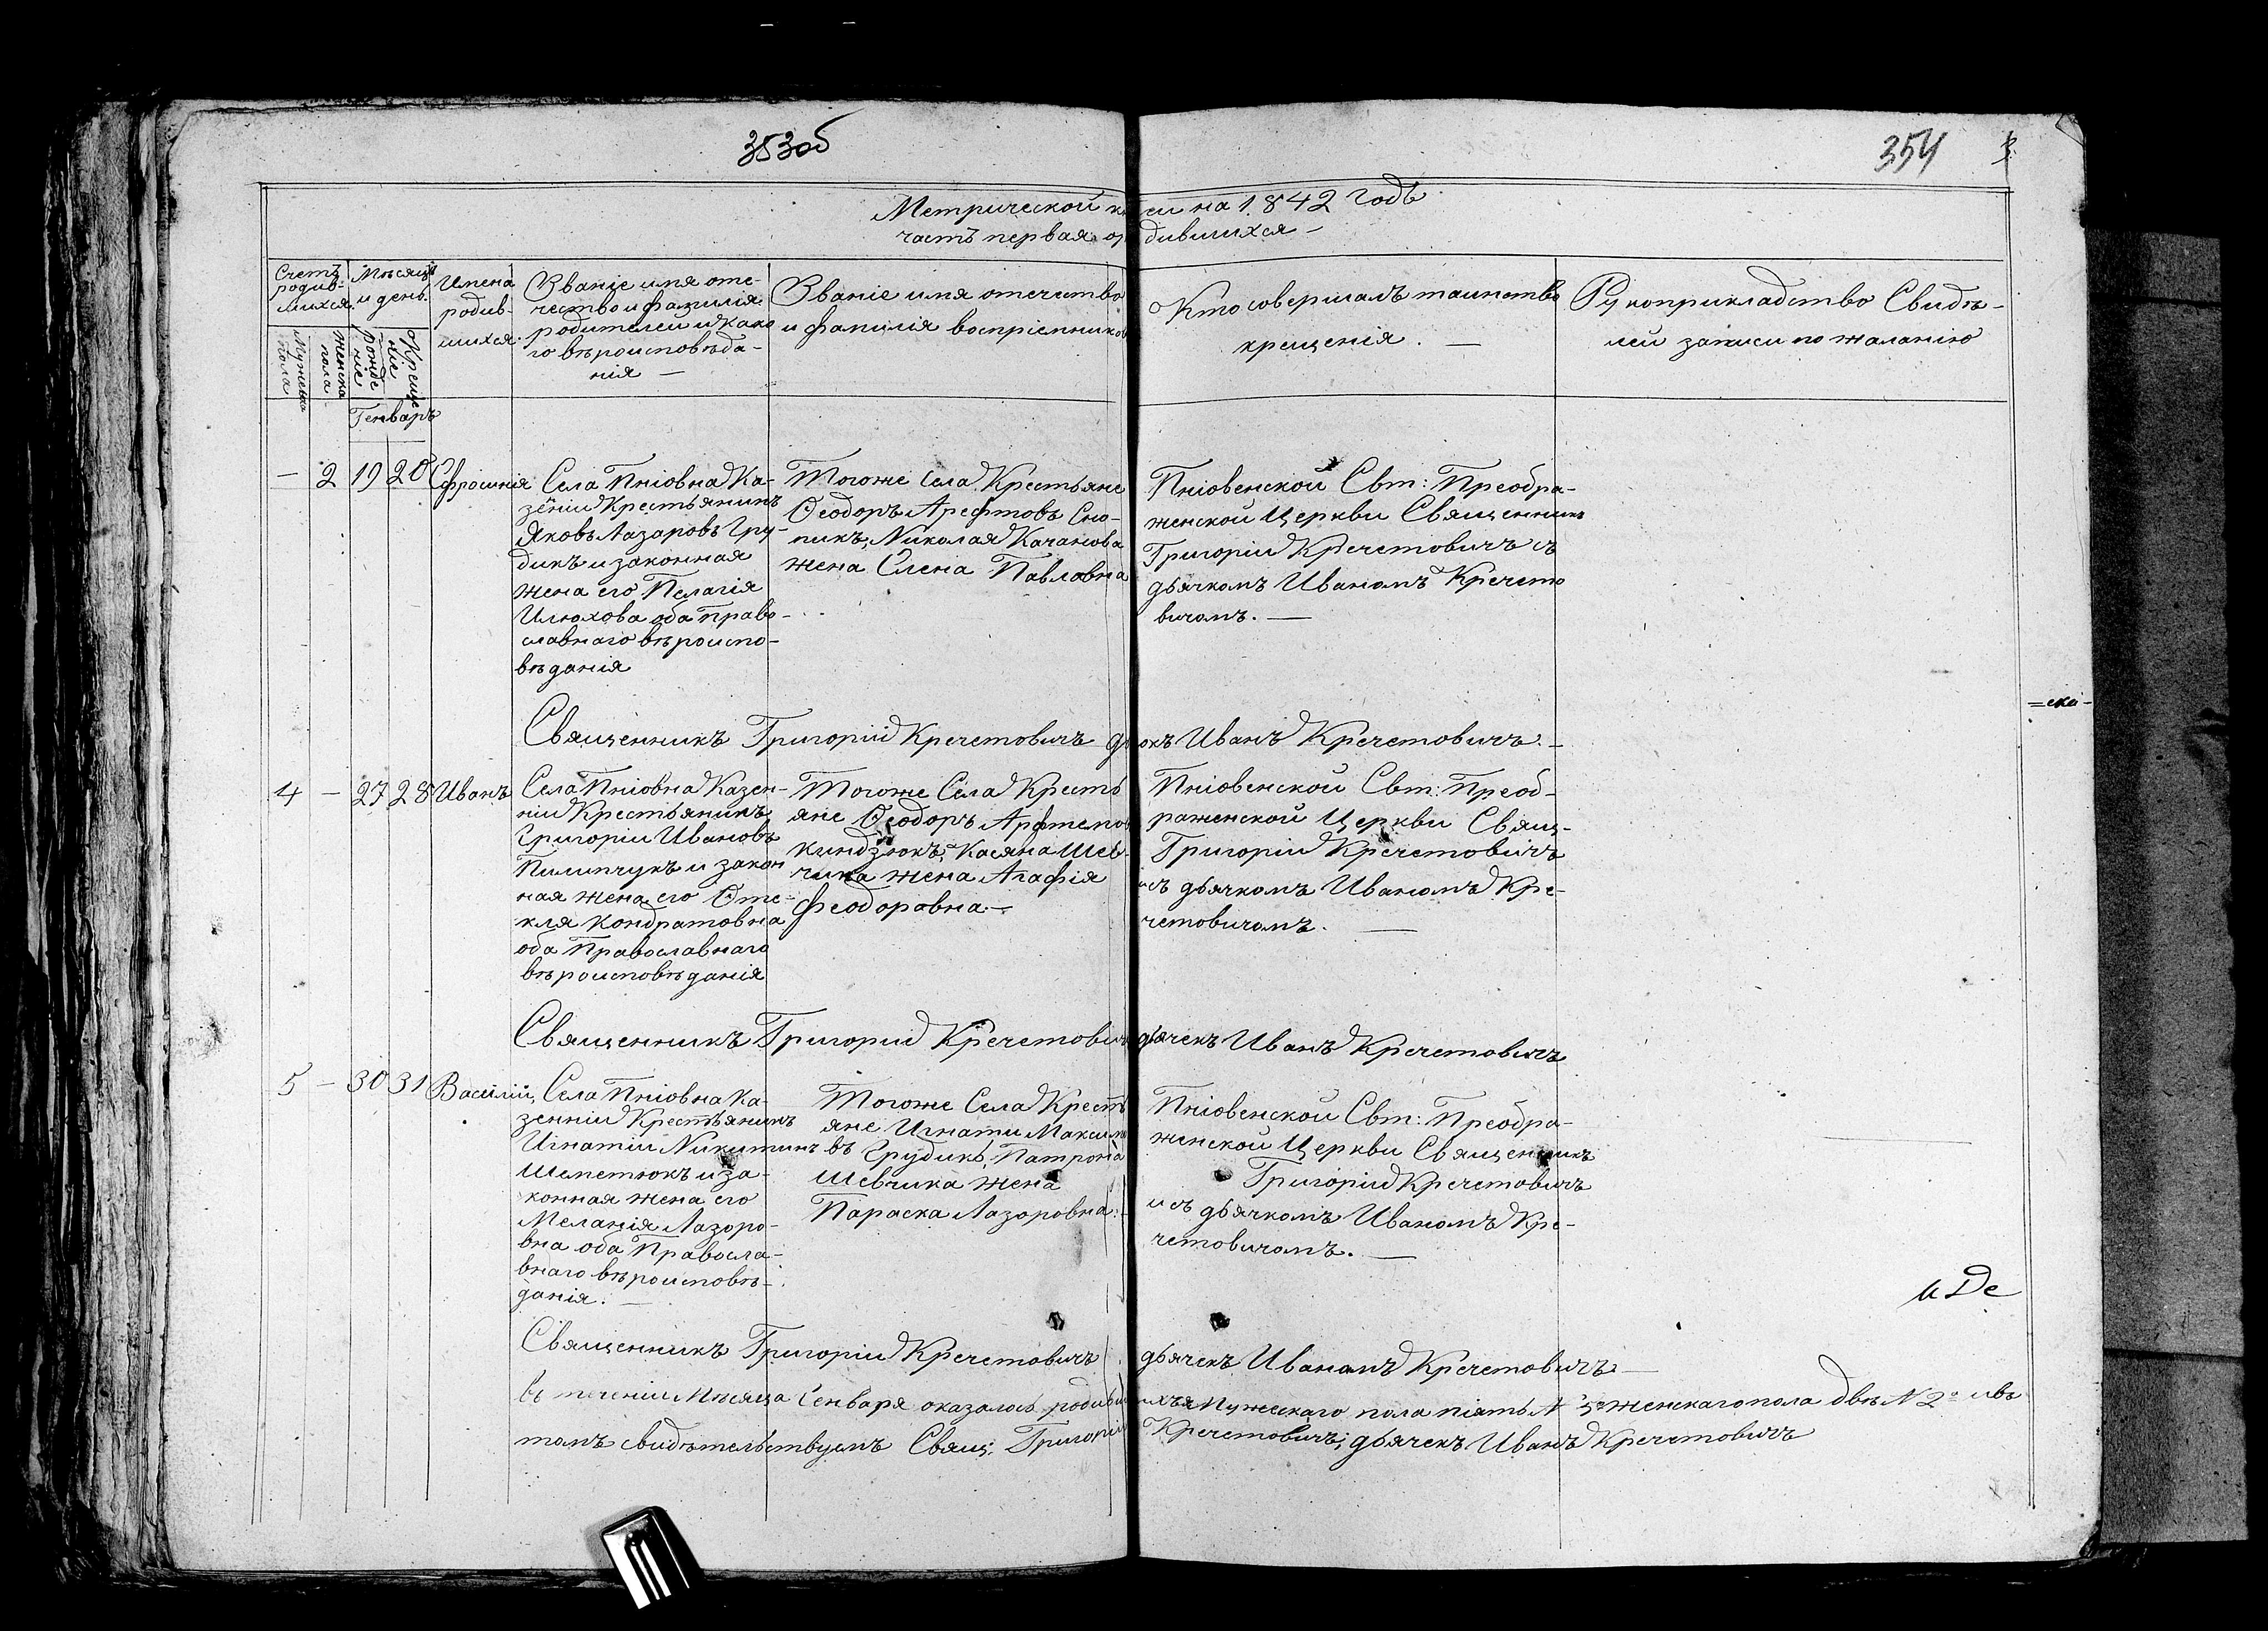 353об
354
Метрической книги на 1842 годъ
часть первая о родившихся —
Счетъ родив- шихся.
Мѣсяцъ и день.
Имена родив- шихся.
Званіе имя оте-
чество и фамилія
родителей и како
го вѣроисповѣда-
нія —
Званіе имя отечество
и фамилія воспріемниковъ
Кто совершалъ таинство
крещенія. —
Рукоприкладство Свидѣ-
лей записи по жаланію
Мужеска пола
Женска пола
Рожде ніе
Креще ніе
Генварь
— 2 19 20 Ефросинія
Села Пніовна Ка-
зёніи Крестьянинъ
Яковъ Лазаровъ Гру-
дикъ и законная
жена его Пелагія
Илюхова оба право-
славнаго вѣроиспо-
вѣданія
Тогоже Села Крестьяне
Ѳеодоръ Арефтовъ Сно-
пикъ, Николая Качанова
жена Елена Павловна
Пніовенской Свт: Преобра-
женской Церкви Священникъ
Григоріи Кречетовичъ съ
дьячкомъ Иваномъ Кречето
вичомъ. —
Священникъ Григорій Кречетовичъ дьячокъ Иванъ Кречетовичъ. —
4 — 27 28 Иванъ
Села Пніовна Казен-
ніи Крестьянинъ
Григоріи Ивановъ
Пилипчукъ и закон
ная жена его Ѳте-
кля Кондратовна
оба Православнаго
вѣроисповѣданія
Тогоже Села Кресть
яне Ѳеодоръ Арфтемов
Киндзюкъ, Касяна Шев-
чика жена Агафія
Феодоровна. —
Пніовенской Свт: Преоб-
раженской Церкви Свящ-
Григоріи Кречетовичъ
исъ дьячкомъ Иваномъ Кре-
четовичомъ. —
Священникъ Григорій Кречетовичъ дьячекъ Иванъ Кречетовичъ
5 — 30 31 Василій
Села Пніовна Ка-
зенніи Крестьянинъ
Игнатіи Никитинъ
Шепетюкъ и за-
конная жена его
Меланія Лазоро-
вна оба Правосла-
внаго вѣроисповѣ-
данія. —
Тогоже Села Кресть
яне Игнати Максимо
въ Грудикъ, Патрона
Шевчика жена
Параска Лазоровна. —
Пніовенской Свт: Преобра-
женской Церкви Священникъ
Григоріи Кречетовичъ
исъ дьячкомъ Иваномъ Кре-
четовичомъ. —
=ска-
и Де
Священникъ Григоріи Кречетовичъ дьячекъ Иванъ Кречетовичъ —
въ теченіи Мѣсяца Генваря оказалось родившихъя мужескаго пола пять N 5 женскаго пола двѣ N 2 ивъ
томъ свидѣтельствуемъ Свящ: Григоріи Кречетовичъ; дьячекъ Иванъ Кречетовичъ